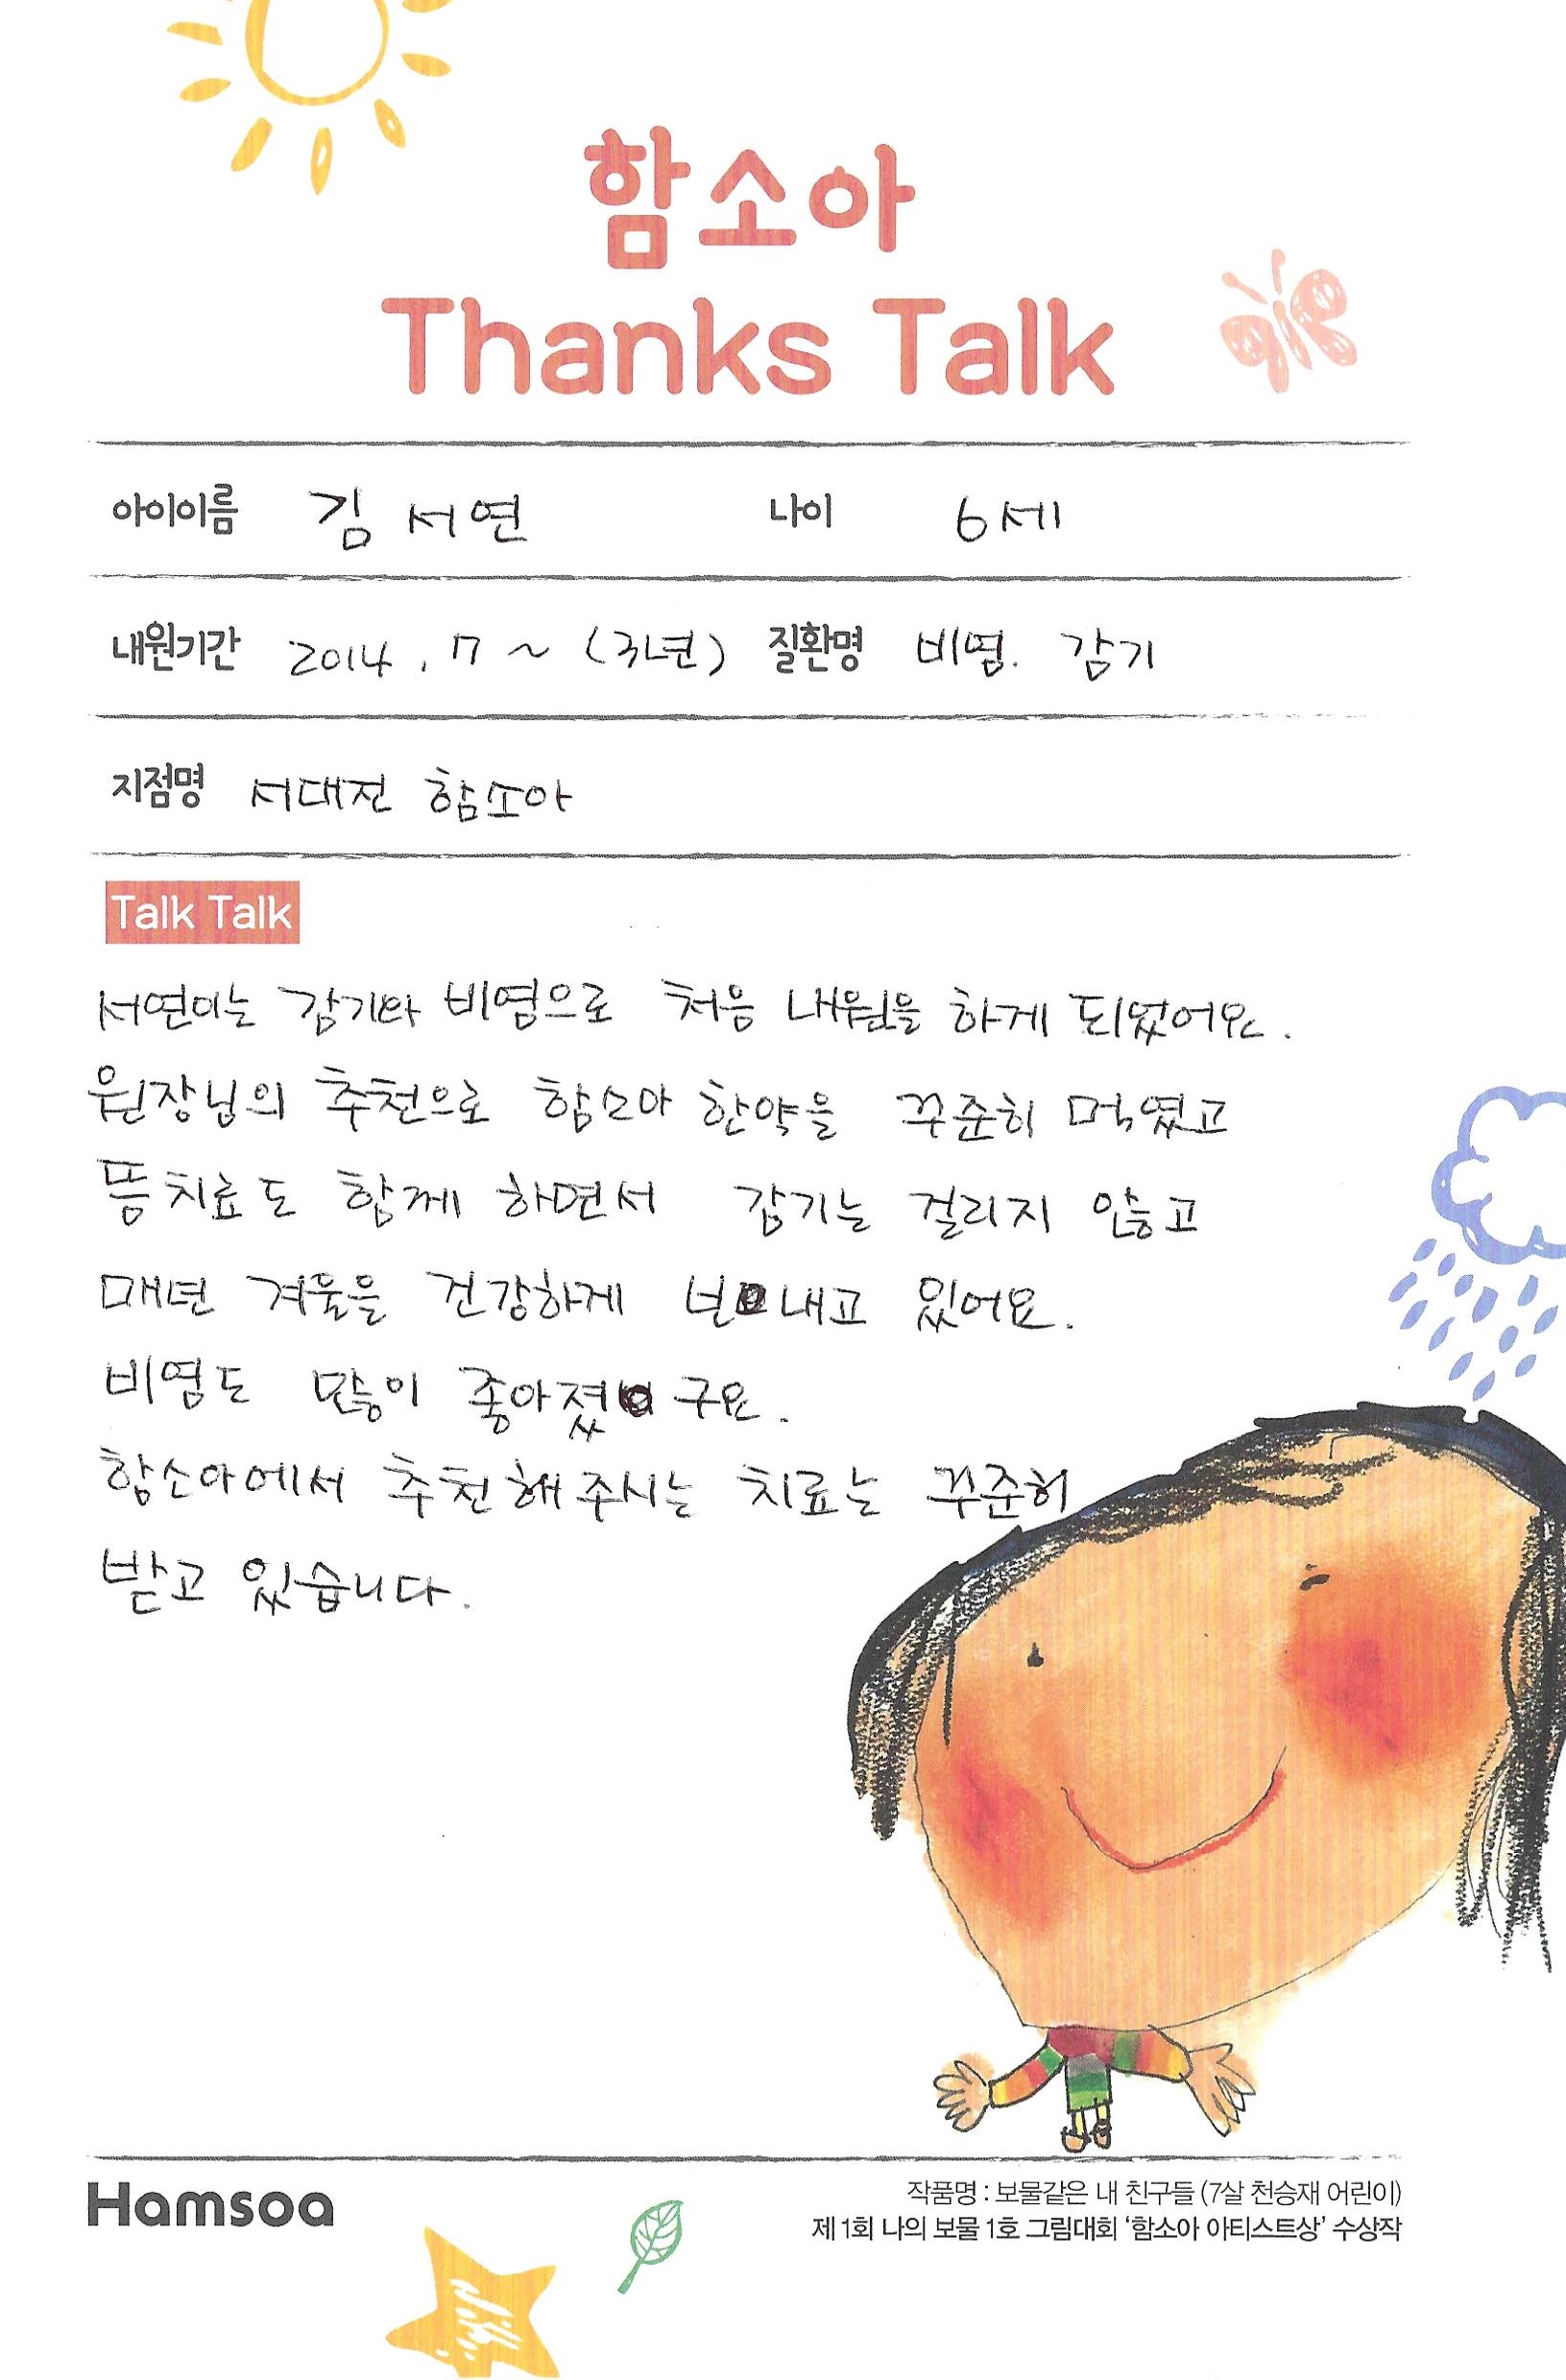 함소아
Thanks Talk
아이이름 김서연 나이 6세
내원기간 2014. 17 ~ (3년) 질환명 비염. 감기
지점명 서대전 함소아
Talk Talk
서연이는 감기와 비염으로 처음 내원을 하게 되었어요.
원장님의 추천으로 함소아 한약을 꾸준히 먹였고
뜸치료도 함께 하면서 감기는 걸리지 않고
매년 겨울을 건강하게 보내고 있어요.
비염도 많이 좋아졌구요.
함소아에서 추천해주시는 치료는 꾸준히
받고 있습니다.
Hamsoa
작품명 : 보물같은 내 친구들 (7살 천승재 어린이)
제 1회 나의 보물 1호 그림대회 ‘함소아 아티스트상’ 수상작